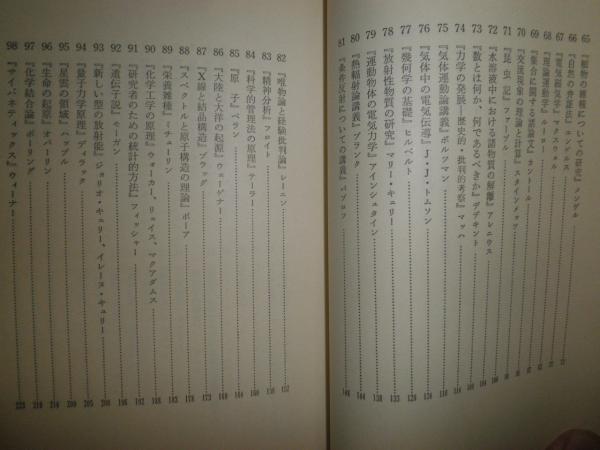 65 『植物の雑種についての研究』メンデル
66 『自然の弁証法』エンゲルス
67 『電気磁気学』マクスウェル
68
69 『集合に関する諸論文』カントール
70 『交流現象の理論と計算』スタインメッツ
71 『昆虫記』ファーブル
72 『水溶液中における諸物質の解離』アレニウス
73 『数とは何か、何であるべきか』デデキント
74 『力学の発展―歴史的・批判的考察』マッハ
75 『気体運動論講義』ボルツマン
76 『気体中の電気伝導』J・J・トムソン
77 『幾何学の基礎』ヒルベルト
78 『放射性物質の研究』マリー・キュリー
79 『運動物体の電気力学』アインシュタイン
80 『熱輻射論講義』プランク
81 『条件反射についての講義』パブロフ
82 『唯物論と経験批判論』レーニン 152
83 『精神分析』フロイト
84 『科学的管理法の原理』テーラー
85 『原子』ペラン
86 『大陸と大洋の起源』ウェーゲナー
87 『X線と結晶構造』ブラッグ 173
88 『スペクトルと原子構造の理論』ボーア
89 『栄養雑種』ミチューリン
90 『化学工学の原理』ウォーカー、リュイス、マクアダムス
91 『研究者のための統計的方法』フィッシャー
92 『遺伝子説』モーガン 196
93 『新しい型の放射能』ジョリオ・キュリー、イレーヌ・キュリー 200
94 『量子力学原理』ディラック
95 『星雲の領域』ハッブル
96 『生命の起原』オパーリン
97 『化学結合論』ポーリング
98 『サイバネティックス』ウィーナー 223